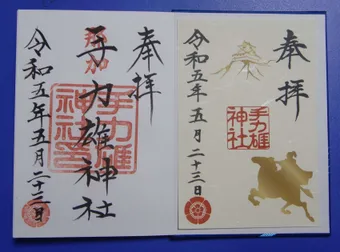 奉拝
手力雄
神社
令和五年五月二十三日
奉拝
那加
手力雄神社
手力雄
神社印
令和五年五月二十三日